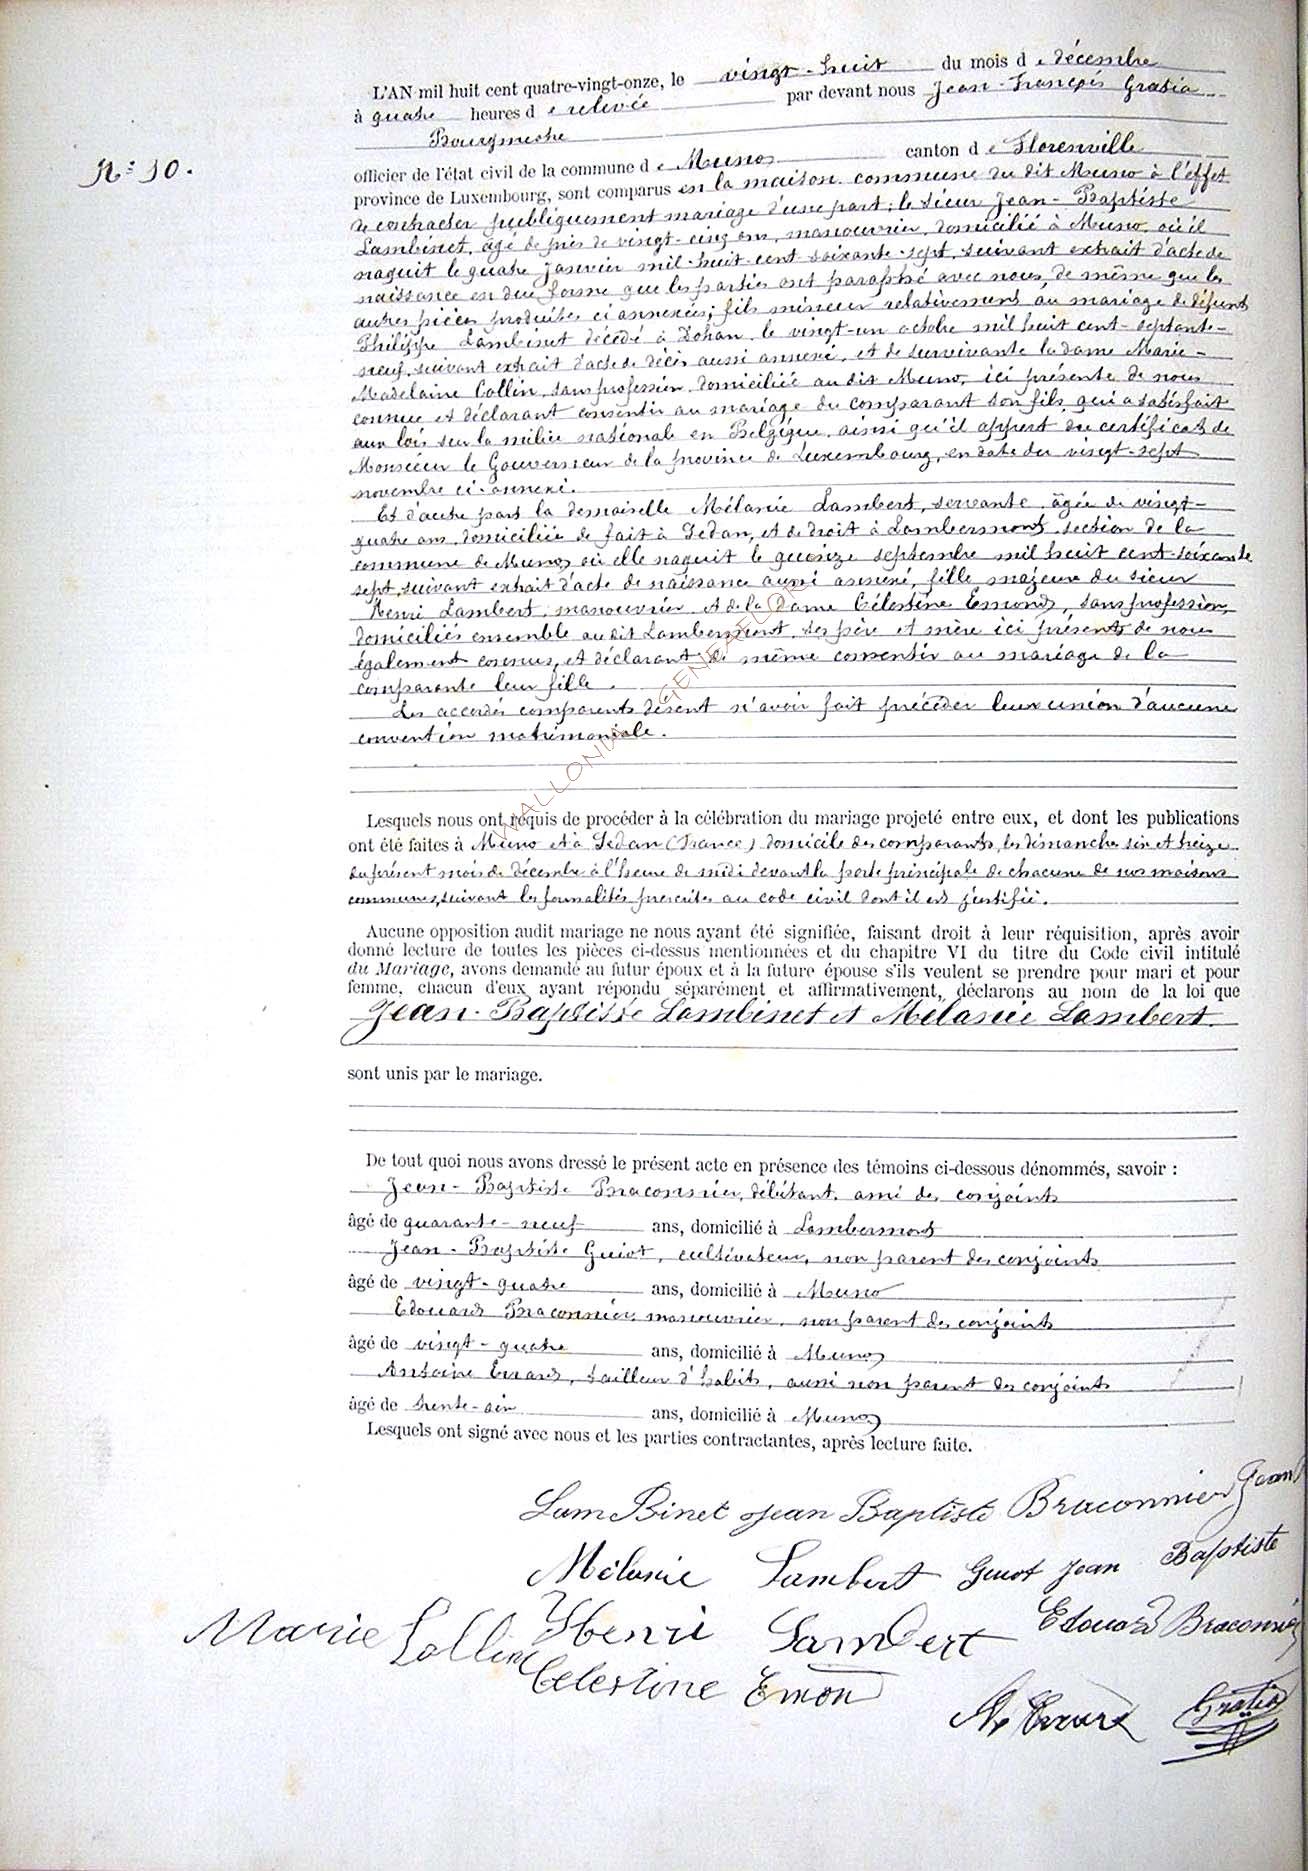 L'AN mil huit cent quatre-vingt-onze, le vingt-huit du mois de décembre
à quatre heures de relevée par devant nous Jean-François Gratia
Bourgmestre
N° 10.
officier de l'état civil de la commune de Muno canton de Florenville
province de Luxembourg, sont comparus en la maison commune du dit Muno à l'effet
de contracter publiquement mariage d'une part; le sieur Jean-Baptiste
Lambinet, âgé de près de vingt-cinq ans, manouvrier, domicilié à Muno, où il
naquit le quatre Janvier mil-huit-cent-soixante-sept, suivant extrait d'acte de
naissance en due forme que les parties ont paraphé avec nous, de même que les
autres pièces produites ci annexées; fils mineur relativement au mariage de défunt
Philippe Lambinet décédé à Dohan le vingt-un octobre mil huit cent-septante-
neuf, suivant extrait d'acte de décès aussi annexé, et de survivante la dame Marie-
Madelaine Collin, sans profession, domiciliée au dit Muno, ici présente de nous
connue et déclarant consentir au mariage du comparant son fils, qui a satisfait
aux lois sur la milice nationale en Belgique, ainsi qu'il appert du certificat de
Monsieur le Gouverneur de la province de Luxembourg, en date du vingt-sept
novembre ci-annexé.
Et d'autre part la demoiselle Mélanie Lambert, servante, âgée de vingt-
quatre ans, domiciliée de fait à Sedan, et de droit à Lambermont, section de la
commune de Muno, où elle naquit le quinze septembre mil huit cent-soixante
sept, suivant extrait d'acte de naissance aussi annexé, fille majeure du sieur
Henri Lambert, manouvrier et de la Dame Célestine Emond, sans profession,
domiciliés ensemble au dit Lambermont, ses père et mère ici présents de nous
également connus, et déclarant de même consentir au mariage de la
comparante leur fille.
Les accordés comparents disent n'avoir fait précéder leur union d'aucune
convention matrimoniale.
WALLONIA GENEAFLOR
Lesquels nous ont requis de procéder à la célébration du mariage projeté entre eux, et dont les publications
ont été faites à Muno et à Sedan (France) domicile des comparants, les dimanches six et treize
du présent mois de décembre à l'heure de midi devant la porte principale de chacune de nos maisons
communes, suivant les formalités prescrites au code civil dont il est justifié.
Aucune opposition audit mariage ne nous ayant été signifiée, faisant droit à leur réquisition, après avoir
donné lecture de toutes les pièces ci-dessus mentionnées et du chapitre VI du titre du Code civil intitulé
du Mariage, avons demandé au futur époux et à la future épouse s'ils veulent se prendre pour mari et pour
femme, chacun d'eux ayant répondu séparément et affirmativement, déclarons au nom de la loi que
Jean-Baptiste Lambinet et Mélanie Lambert
sont unis par le mariage.
De tout quoi nous avons dressé le présent acte en présence des témoins ci-dessous dénommés, savoir :
Jean-Baptiste Braconnier, débitant, ami des conjoints
âgé de quarante-neuf ans, domicilié à Lambermont
Jean-Baptiste Guiot, cultivateur, non parent des conjoints
âgé de vingt-quatre ans, domicilié à Muno
Edouard Braconnier, manouvrier, non parent des conjoints
âgé de vingt-quatre ans, domicilié à Muno
Antoine Errard, tailleur d'habits, aussi non parent des conjoints
âgé de trente-six ans, domicilié à Muno
Lesquels ont signé avec nous et les parties contractantes, après lecture faite.
Lam Binet Jean Baptiste Braconnier Jean
Mélanie Lambert Guiot Jean Baptiste
Marie Collin Henri Lambert Edouard Braconnier
Celestine Emon
Errard Gratia